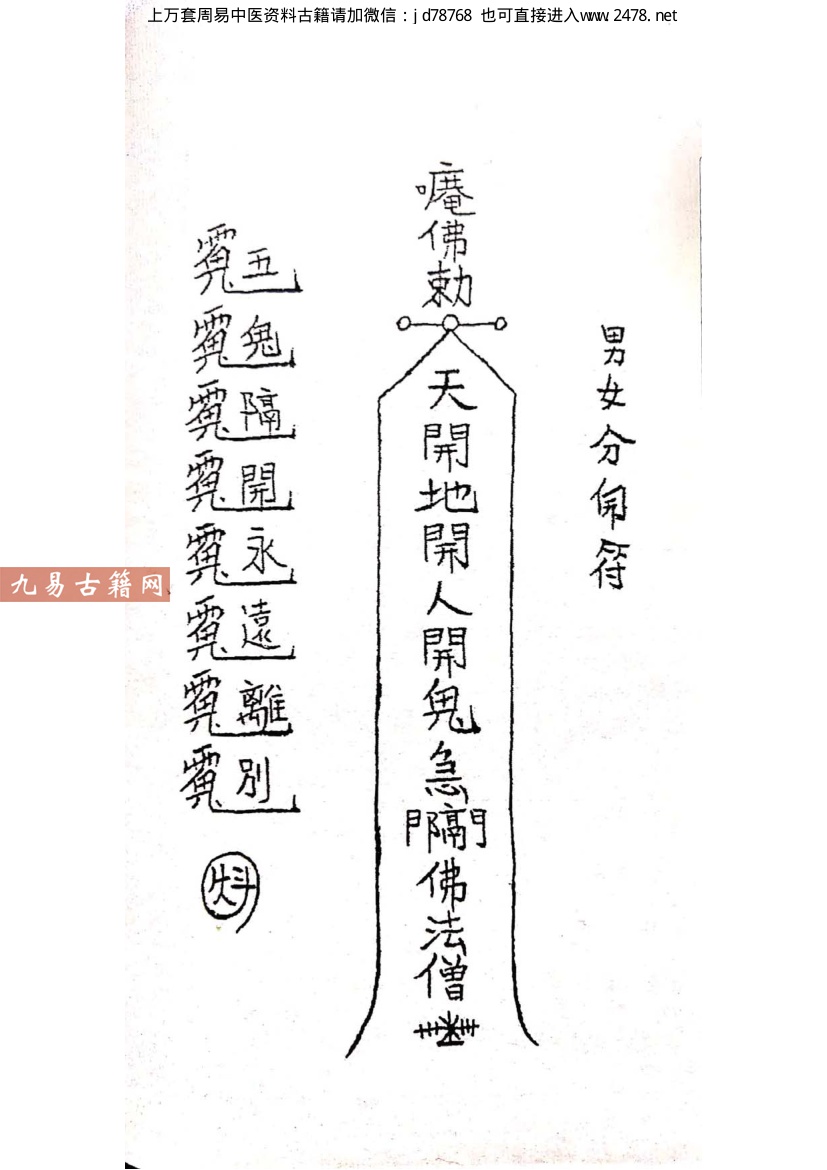 上万套周易中医资料古籍请加微信：jd78768 也可直接进入www.2478.net
男女分開符
唵佛勅
天開地開人開鬼急隔佛法僧
五鬼隔開永遠離別
九易古籍网